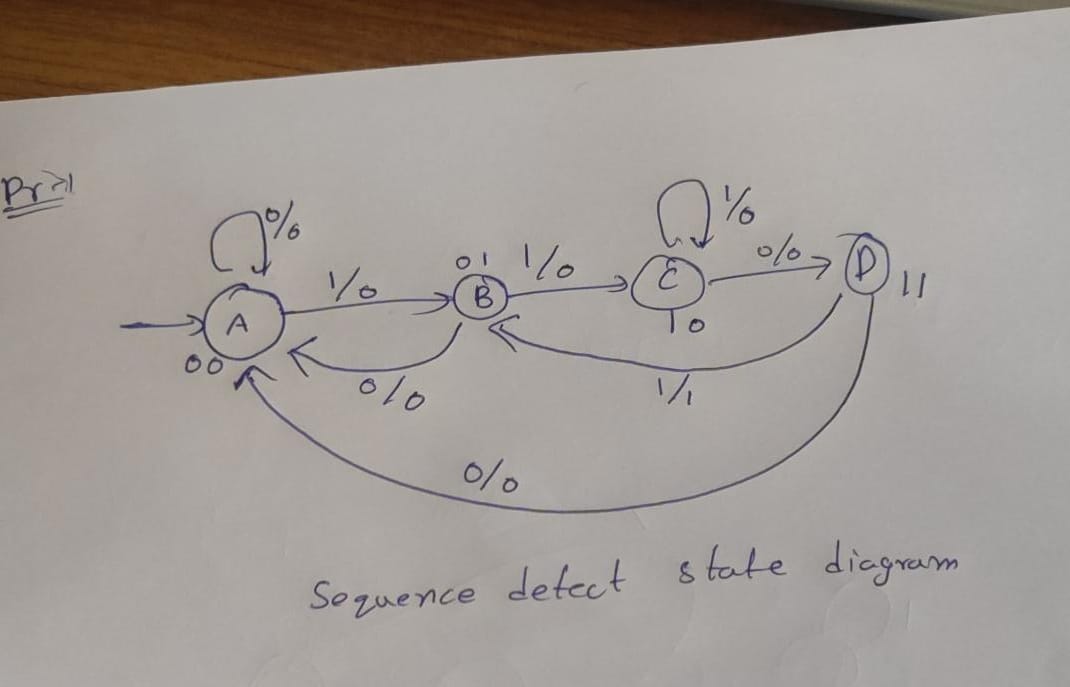 Pr⇒1
0/0
1/0
A
00
01
B
1/0
0/0
1/0
C
10
0/0
D
11
1/1
0/0
Sequence detect state diagram